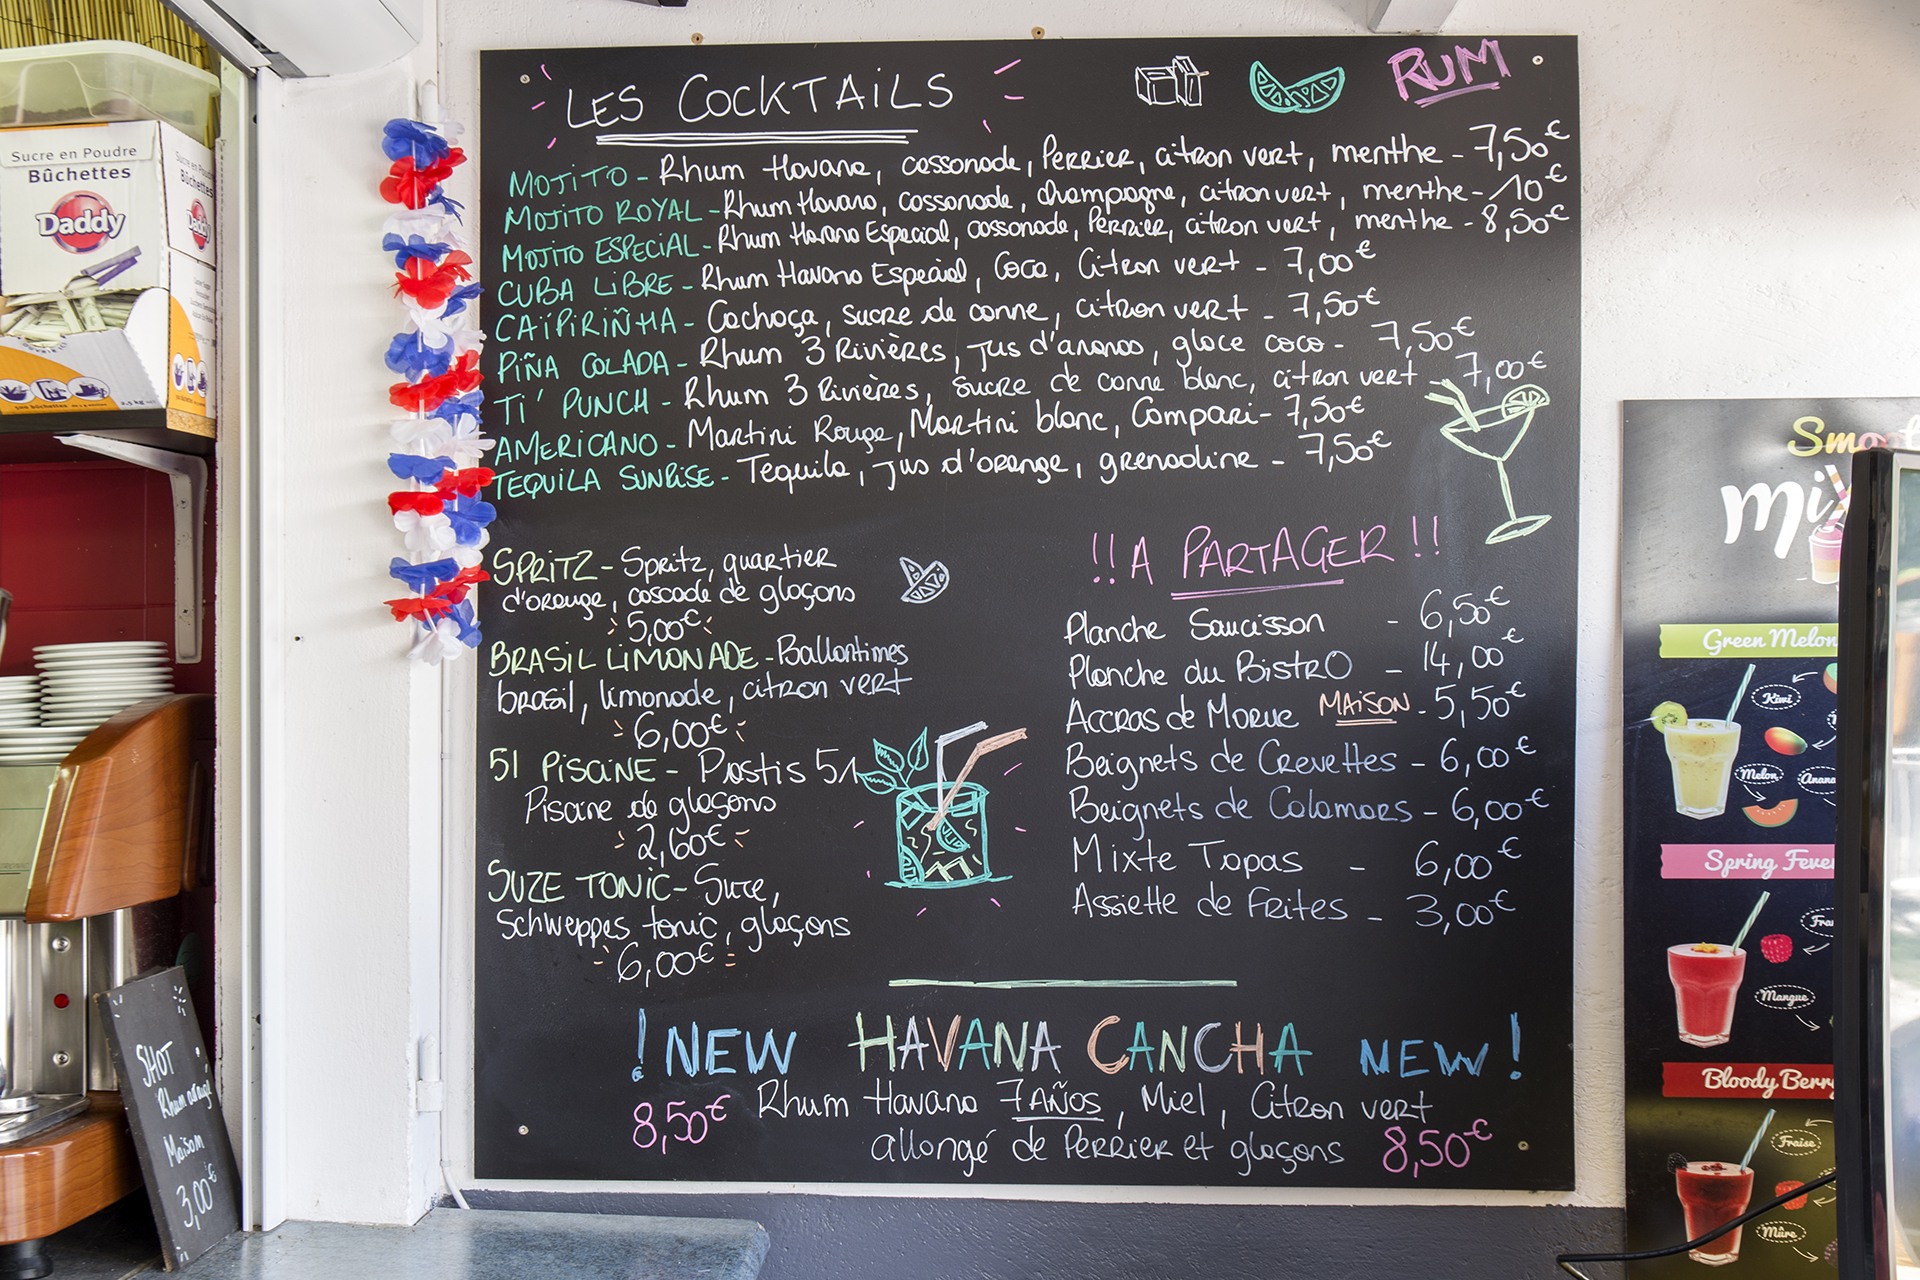 LES COCKTAILS
RUM
MOJITO - Rhum Havana, cassonade, Perrier, citron vert, menthe - 7,50€
MOJITO ROYAL - Rhum Havana, cassonade, champagne, citron vert, menthe - 10€
MOJITO ESPECIAL - Rhum Havana Especial, cassonade, Perrier, citron vert, menthe - 8,50€
CUBA LIBRE - Rhum Havana Especial, Coca, Citron vert - 7,00€
CAÏPIRIÑHA - Cachaça, sucre de canne, citron vert - 7,50€
PIÑA COLADA - Rhum 3 Rivières, jus d'ananas, glace coco - 7,50€
TI' PUNCH - Rhum 3 Rivières, sucre de canne blanc, citron vert - 7,00€
AMERICANO - Martini Rouge, Martini blanc, Campari - 7,50€
TEQUILA SUNRISE - Tequila, jus d'orange, grenadine - 7,50€
SPRITZ - Spritz, quartier
d'orange, cascade de glaçons
5,00€
BRASIL LIMONADE - Ballantimes
brasil, limonade, citron vert
6,00€
51 PISCINE - Pastis 51
Piscine de glaçons
2,60€
SUZE TONIC - Suze,
Schweppes tonic, glaçons
6,00€
!! A PARTAGER !!
Planche Saucisson - 6,50€
Planche du BistrO - 14,00€
Accras de Morue MAISON - 5,50€
Beignets de Crevettes - 6,00€
Beignets de Calamars - 6,00€
Mixte Tapas - 6,00€
Assiette de Frites - 3,00€
! NEW HAVANA CANCHA NEW !
8,50€ Rhum Havana 7 AÑOS, Miel, Citron vert
allongé de Perrier et glaçons 8,50€
Sucre en Poudre
Bûchettes
Daddy
SHOT
Rhum arrangé
Maison
3,00€
Green Melon
Kiwi
Melon
Spring Fever
Mangue
Bloody Berry
Fraise
Mûre